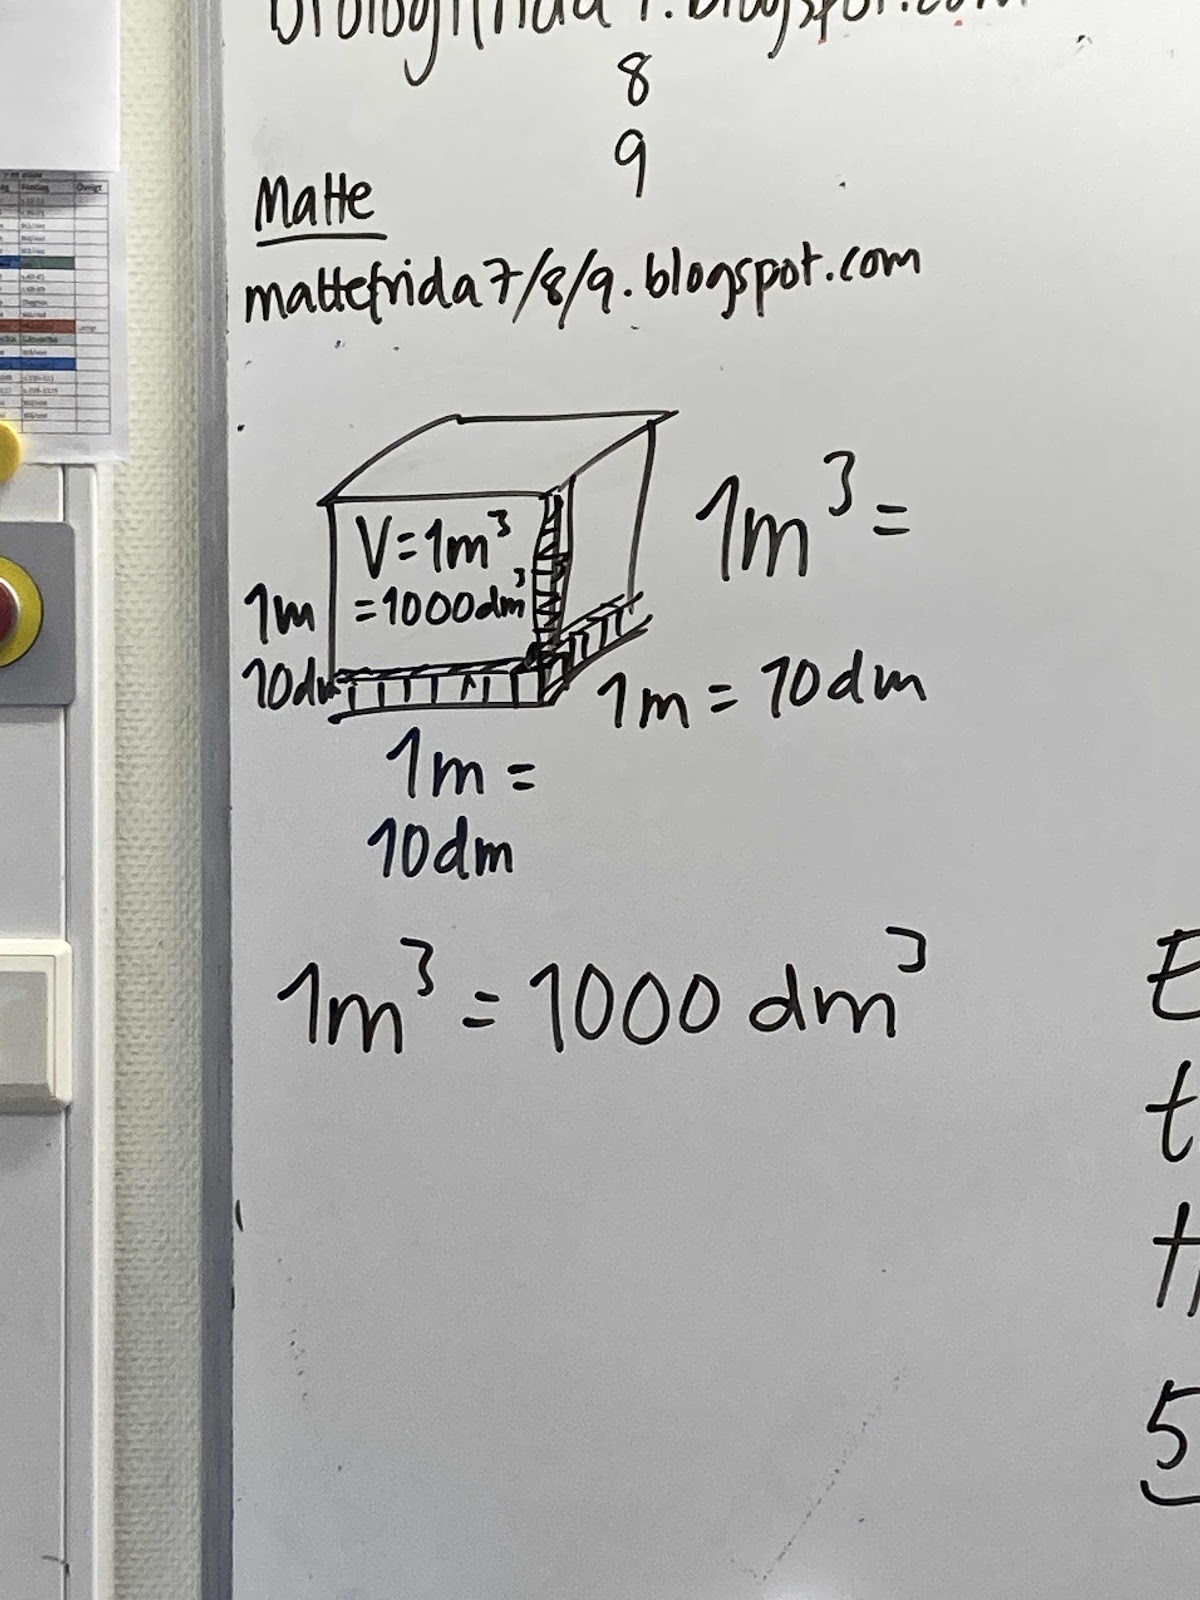 biologifrida7.blogspot.com
8
9
Matte
mattefrida7/8/9.blogspot.com
V=1m³
=1000dm³
1m
10dm
1m³=
1m = 10dm
1m =
10dm
1m³ = 1000 dm³
E
t
5